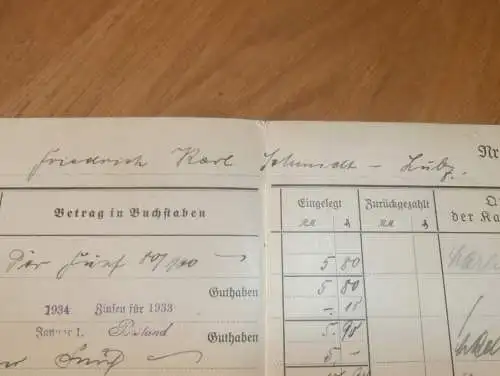 Nr
Friedrich Karl Schmidt - Lübz.
Betrag in Buchstaben
Eingelegt
Zurückgezahlt
der Ka
RM
RM
5 80
Guthaben
5 80
1934 Zinsen für 1933
-. 15
Januar 1. Bestand Guthaben
5. 95
5. -